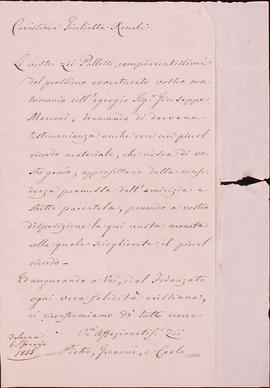 Carissima Giulietta Renoli:
I vostri zii Pallotti, compiacentissimi
del prossimo avventurato vostro ma-
trimonio coll'egregio Sig. Giuseppe
Marconi; bramando di darvene
testimonianza anche con un piccol
ricordo materiale, che riesca di vo-
stro genio; approfittano della confi-
denza permessa dall'amicizia e
stretta parentela, ponendo a vostra
disposizione la qui unita moneta
colla quale sceglierete il piccol
ricordo.
Ed augurando a Voi, ed al Fidanzato
ogni vera felicità cristiana,
ci riconfermiamo di tutto cuore
Bologna
1855
Affezionatis. Zii
Pietro, Giovanni, e Carlo